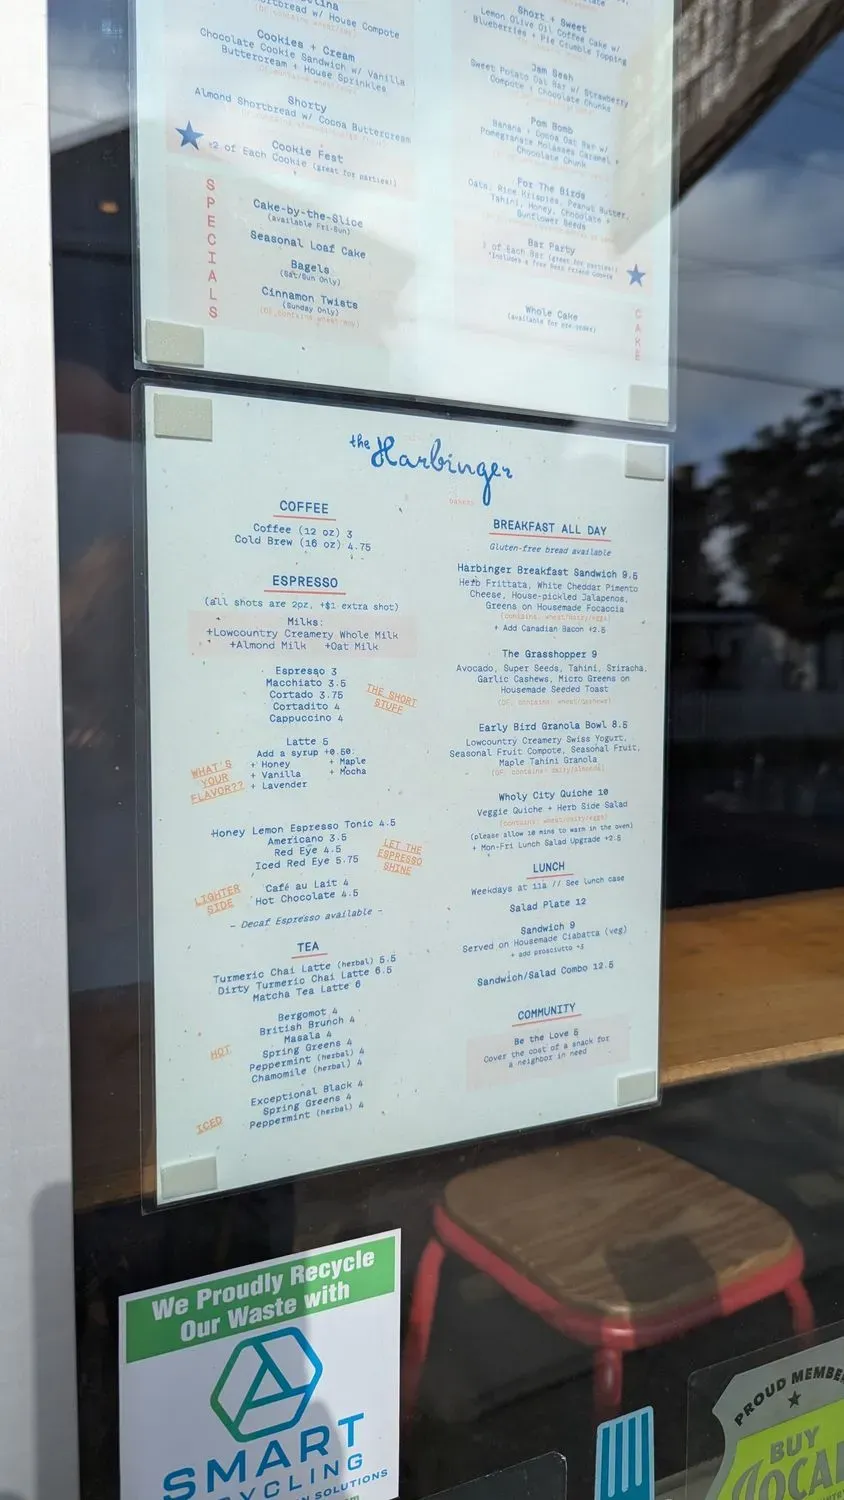 Shortbread w/ House Compote
Cookies + Cream
Chocolate Cookie Sandwich w/ Vanilla
Buttercream + House Sprinkles
Shorty
Almond Shortbread w/ Cocoa Buttercream
Cookie Fest
*2 of Each Cookie (great for parties!)
SPECIALS
Cake-by-the-Slice
(available Fri-Sun)
Seasonal Loaf Cake
Bagels
(Sat/Sun Only)
Cinnamon Twists
(Sunday Only)
Short + Sweet
Lemon Olive Oil Coffee Cake w/
Blueberries + Pie Crumble Topping
Jam Sesh
Sweet Potato Oat Bar w/ Strawberry
Compote + Chocolate Chunks
Pom Bomb
Banana + Cocoa Oat Bar w/
Pomegranate Molasses Caramel +
Chocolate Chunk
For The Birds
Oats, Rice Krispies, Peanut Butter,
Tahini, Honey, Chocolate +
Sunflower Seeds
Bar Party
of Each Bar (great for parties!)
*Includes a free Best Friend Cookie
Whole Cake
(available for pre-order)
CAKE
the Harbinger
bakery
COFFEE
Coffee (12 oz) 3
Cold Brew (16 oz) 4.75
ESPRESSO
(all shots are 2oz, +$1 extra shot)
Milks:
+Lowcountry Creamery Whole Milk
+Almond Milk +Oat Milk
Espresso 3
Macchiato 3.5
Cortado 3.75
Cortadito 4
Cappuccino 4
THE SHORT
STUFF
Latte 5
Add a syrup +0.50:
+ Honey + Maple
+ Vanilla + Mocha
+ Lavender
WHAT'S
YOUR
FLAVOR??
Honey Lemon Espresso Tonic 4.5
Americano 3.5
Red Eye 4.5
Iced Red Eye 5.75
LET THE
ESPRESSO
SHINE
LIGHTER
SIDE
Café au Lait 4
Hot Chocolate 4.5
- Decaf Espresso available -
TEA
Turmeric Chai Latte (herbal) 5.5
Dirty Turmeric Chai Latte 6.5
Matcha Tea Latte 6
HOT
Bergomot 4
British Brunch 4
Masala 4
Spring Greens 4
Peppermint (herbal) 4
Chamomile (herbal) 4
ICED
Exceptional Black 4
Spring Greens 4
Peppermint (herbal) 4
BREAKFAST ALL DAY
Gluten-free bread available
Harbinger Breakfast Sandwich 9.5
Herb Frittata, White Cheddar Pimento
Cheese, House-pickled Jalapenos,
Greens on Housemade Focaccia
(contains: wheat/dairy/eggs)
+ Add Canadian Bacon +2.5
The Grasshopper 9
Avocado, Super Seeds, Tahini, Sriracha,
Garlic Cashews, Micro Greens on
Housemade Seeded Toast
(DF, contains: wheat/cashews)
Early Bird Granola Bowl 8.5
Lowcountry Creamery Swiss Yogurt,
Seasonal Fruit Compote, Seasonal Fruit,
Maple Tahini Granola
(GF, contains: dairy/almonds)
Wholy City Quiche 10
Veggie Quiche + Herb Side Salad
(contains: wheat/dairy/eggs)
(please allow 10 mins to warm in the oven)
+ Mon-Fri Lunch Salad Upgrade +2.5
LUNCH
Weekdays at 11a // See lunch case
Salad Plate 12
Sandwich 9
Served on Housemade Ciabatta (veg)
+ add prosciutto +3
Sandwich/Salad Combo 12.5
COMMUNITY
Be the Love 5
Cover the cost of a snack for
a neighbor in need
We Proudly Recycle
Our Waste with
SMART
CYCLING
SOLUTIONS
PROUD MEMBE
BUY
LOCAL